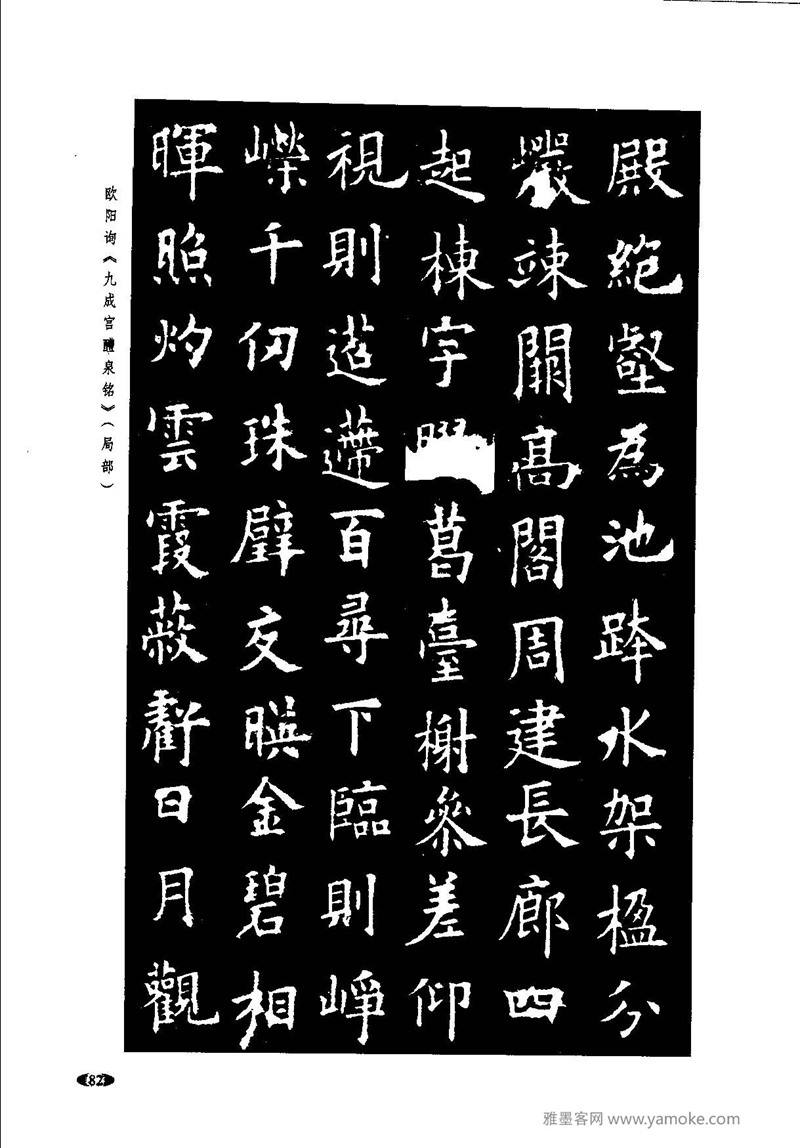 殿絶壑為池跨水架楹分
巖竦闕高閣周建長廊四
起棟宇膠葛臺榭參差仰
視則迢遰百尋下臨則崢
嶸千仞珠璧交暎金碧相
暉照灼雲霞蔽虧日月觀
欧阳询《九成宫醴泉铭》（局部）
82
雅墨客网 www.yamoke.com